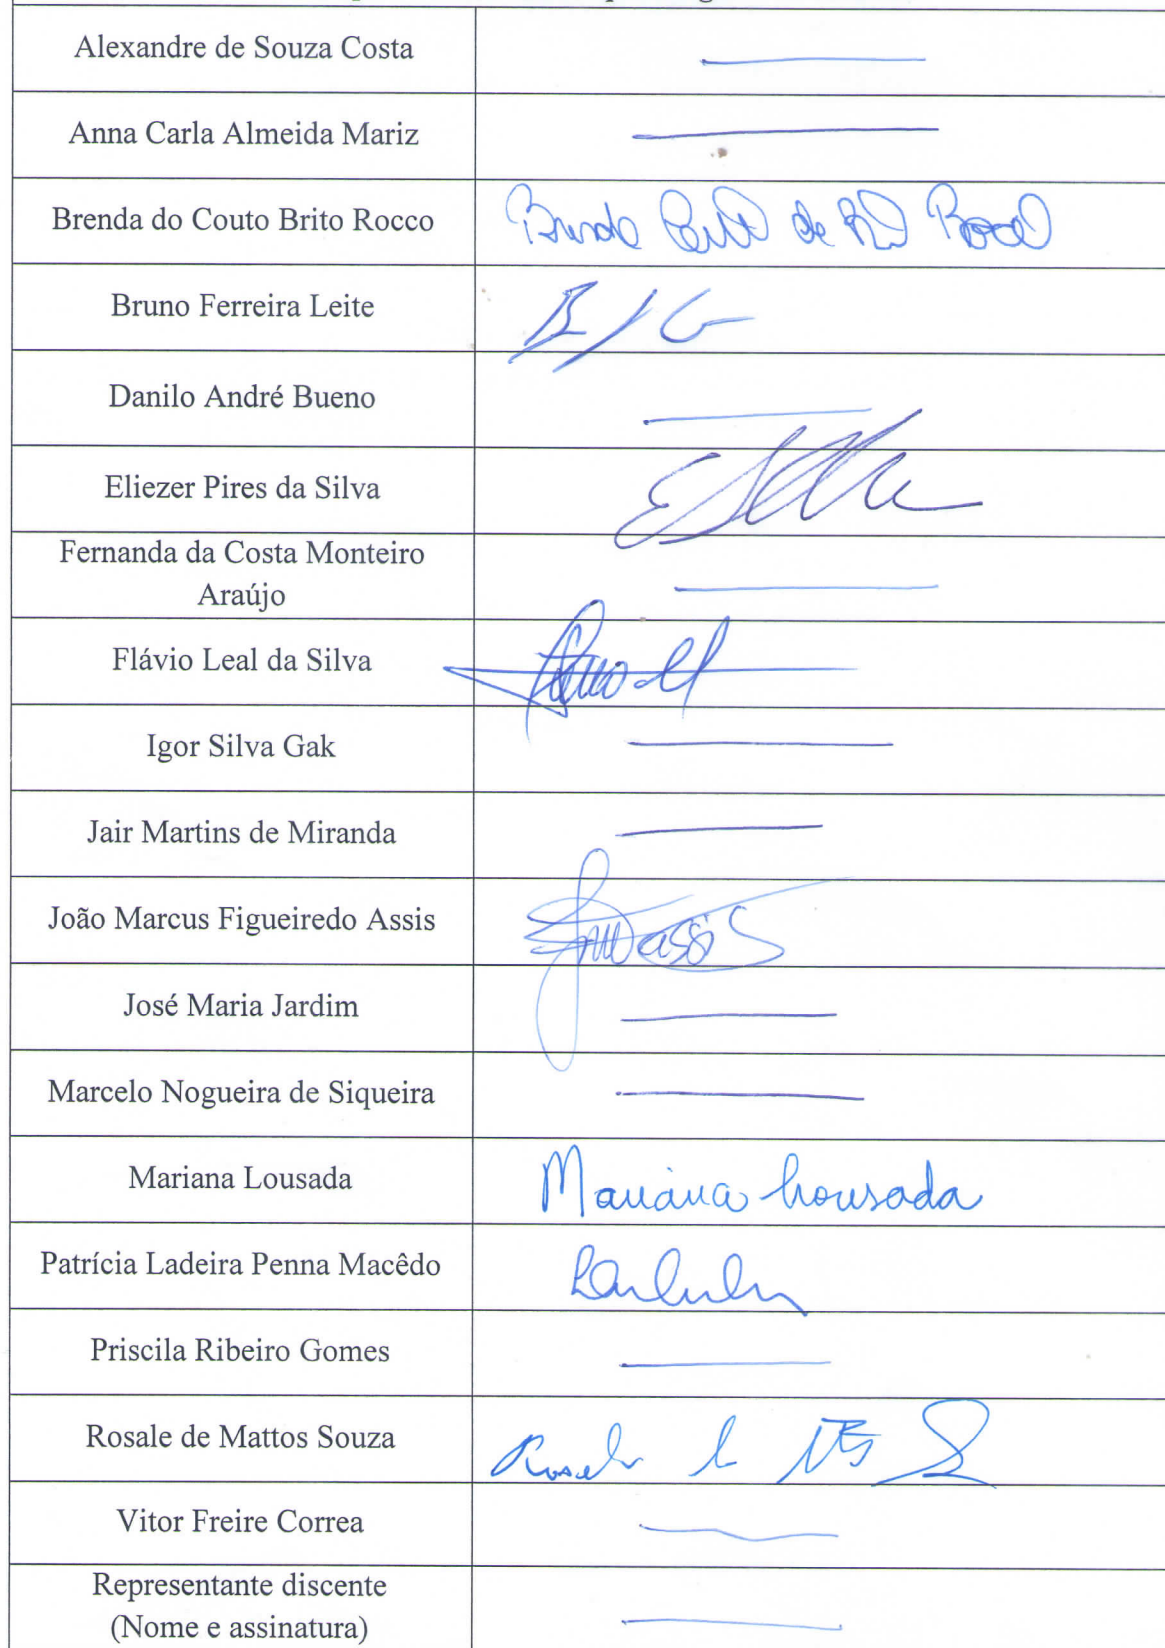 Alexandre de Souza Costa
Anna Carla Almeida Mariz
Brenda do Couto Brito Rocco
Bruno Ferreira Leite
Danilo André Bueno
Eliezer Pires da Silva
Fernanda da Costa Monteiro
Araújo
Flávio Leal da Silva
Igor Silva Gak
Jair Martins de Miranda
João Marcus Figueiredo Assis
Assis
José Maria Jardim
Marcelo Nogueira de Siqueira
Mariana Lousada
Mariana Lousada
Patrícia Ladeira Penna Macêdo
Priscila Ribeiro Gomes
Rosale de Mattos Souza
Vitor Freire Correa
Representante discente
(Nome e assinatura)